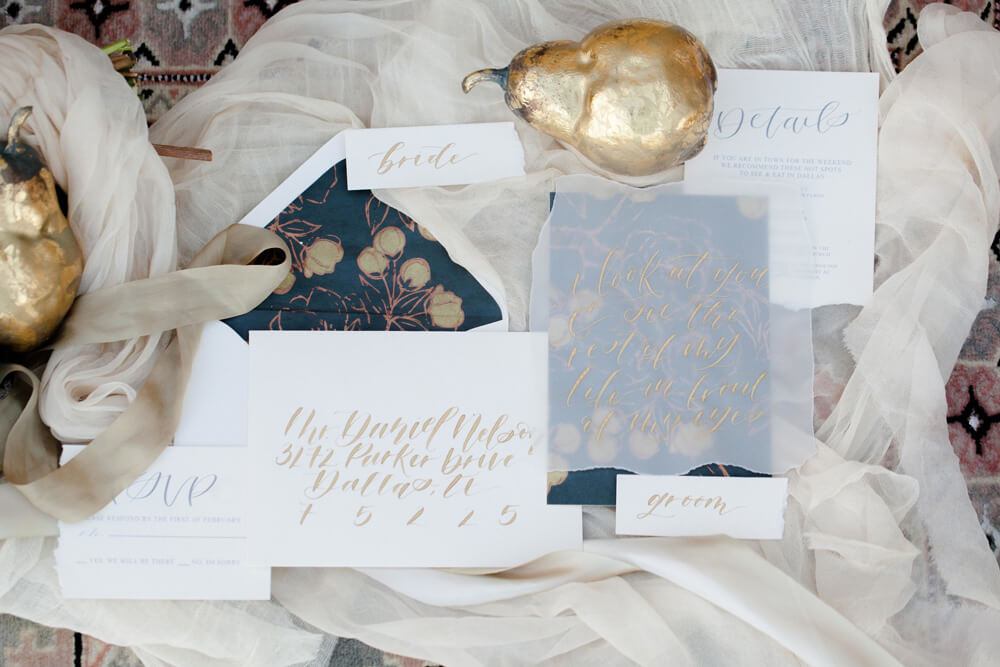 bride
Details
IF YOU ARE IN TOWN FOR THE WEEKEND
WE RECOMMEND THESE HOT SPOTS
TO SEE & EAT IN DALLAS
I look at you
& see the
rest of my
life in front
of my eyes
Mr. Daniel Nelson
3172 Parker Drive
Dallas,
7 5 2 2 5
groom
RSVP
PLEASE RESPOND BY THE FIRST OF FEBRUARY
YES, WE WILL BE THERE NO, I'M SORRY